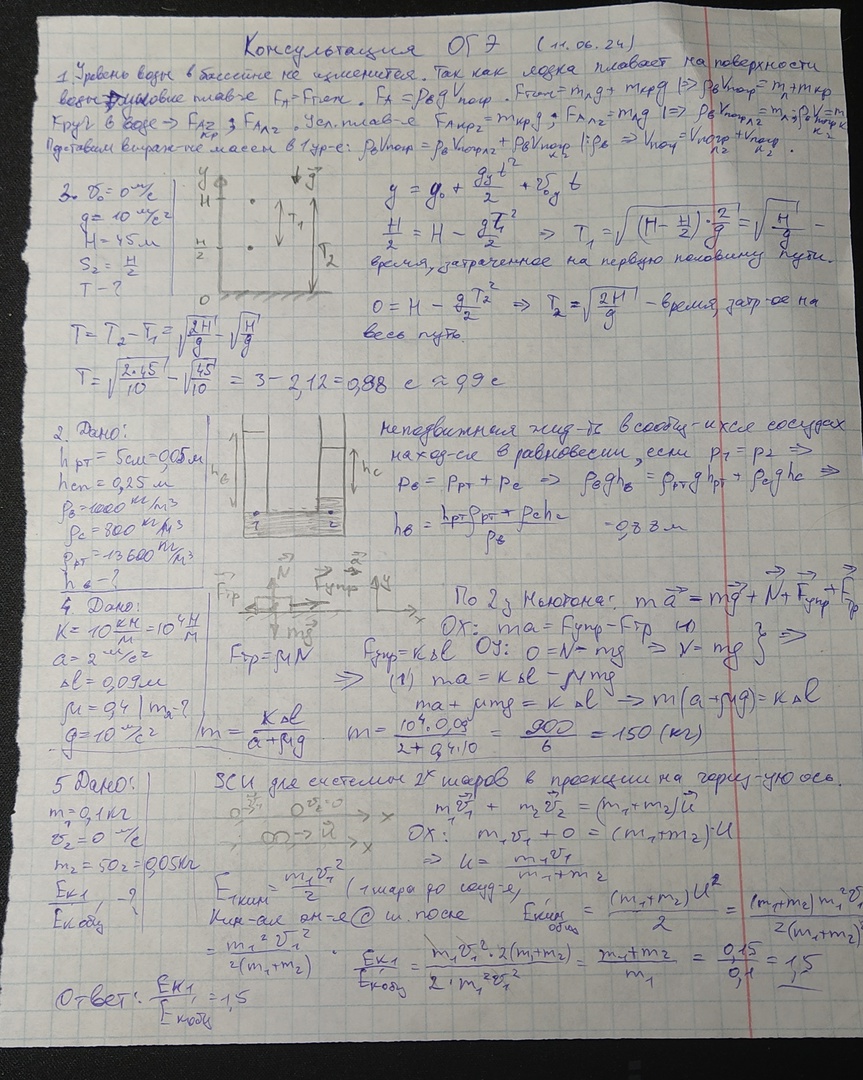 Консультация ОГЭ (11.06.24)
1. Уровень воды в бассейне не изменится. Так как лодка плавает на поверхности
воды условие плав-я F_A = Fтяж. F_A = ρ_в g Vпогр. Fтяж = m_л g + m_кр g |⇒ ρ_в Vпогр = m_л + m_кр
Круг в воде → F_A кр2 ; F_A л2. Усл. плав-я F_A кр2 = m_кр g ; F_A л2 = m_л g |⇒ ρ_в Vпогр л2 = m_л ; ρ_в Vпогр к2 = m к
Подставим выраж-ие массы в 1 ур-е: ρ_в Vпогр = ρ_в Vпогр л2 + ρ_в Vпогр к2 |:ρ_в ⇒ Vпогр = Vпогр л2 + Vпогр к2.
3. υ₀ = 0 м/с
g = 10 м/с²
H = 45 м
S₂ = H/2
T - ?
y g⃗
H
T₁
H/2
T₂
0
y = y₀ + g_y t²/2 + υ₀y t
H/2 = H - gT₁²/2 ⇒ T₁ = √((H - H/2)·2/g) = √(H/g) -
время, затраченное на первую половину пути.
0 = H - gT₂²/2 ⇒ T₂ = √(2H/g) - время, затр-ое на
весь путь.
T = T₂ - T₁ = √(2H/g) - √(H/g)
T = √(2·45/10) - √(45/10) = 3 - 2,12 = 0,88 с ≈ 0,9 с
2. Дано:
h рт = 5см = 0,05м
h сп = 0,25 м
ρ_в = 1000 кг/м³
ρ_с = 800 кг/м³
ρ_рт = 13600 кг/м³
h в - ?
h_в h_с
1 2
неподвижная жид-ть в сообщ-ихся сосудах
наход-ся в равновесии, если p₁ = p₂ ⇒
p_в = p_рт + p_с ⇒ ρ_в g h_в = ρ_рт g h_рт + ρ_с g h_с ⇒
h_в = (h_рт ρ_рт + ρ_с h_с)/ρ_в = 0,88 м
4. Дано:
K = 10 кН/м = 10⁴ Н/м
a = 2 м/с²
Δl = 0,09м
μ = 0,4 | m_я - ?
g = 10 м/с²
F⃗тр N⃗ F⃗упр a⃗ y
mg⃗ x
Fтр = μN Fупр = KΔl
По 2 з Ньютона: ma⃗ = mg⃗ + N⃗ + F⃗упр + F⃗тр
OX: ma = Fупр - Fтр (1)
OY: 0 = N - mg ⇒ N = mg } ⇒
⇒ (1) ma = KΔl - μmg
ma + μmg = KΔl → m(a + μg) = KΔl
m = KΔl/(a + μg) m = 10⁴·0,09/(2 + 0,4·10) = 900/6 = 150 (кг)
5 Дано:
m₁ = 0,1 кг
υ₂ = 0 м/с
m₂ = 50г = 0,05кг
Eк1/Eкобщ - ?
ЗСИ для системы 2х шаров в проекции на гориз-ую ось.
υ⃗₁ υ⃗₂ = 0 x
u⃗ x
m₁υ⃗₁ + m₂υ⃗₂ = (m₁ + m₂)u⃗
OX: m₁υ₁ + 0 = (m₁ + m₂)·U
⇒ U = m₁υ₁/(m₁ + m₂)
E₁кин = m₁υ₁²/2 (1 шара до соуд-я,
Кин-ая эн-я ш. после Eкин общ = (m₁ + m₂)U²/2 = (m₁ + m₂) m₁²υ₁/2(m₁ + m₂)²
= m₁²υ₁²/2(m₁ + m₂). Eк1/Eкобщ = m₁υ₁²·2(m₁ + m₂)/2·m₁²υ₁² = (m₁ + m₂)/m₁ = 0,15/0,1 = 1,5
Ответ: Eк1/Eкобщ = 1,5